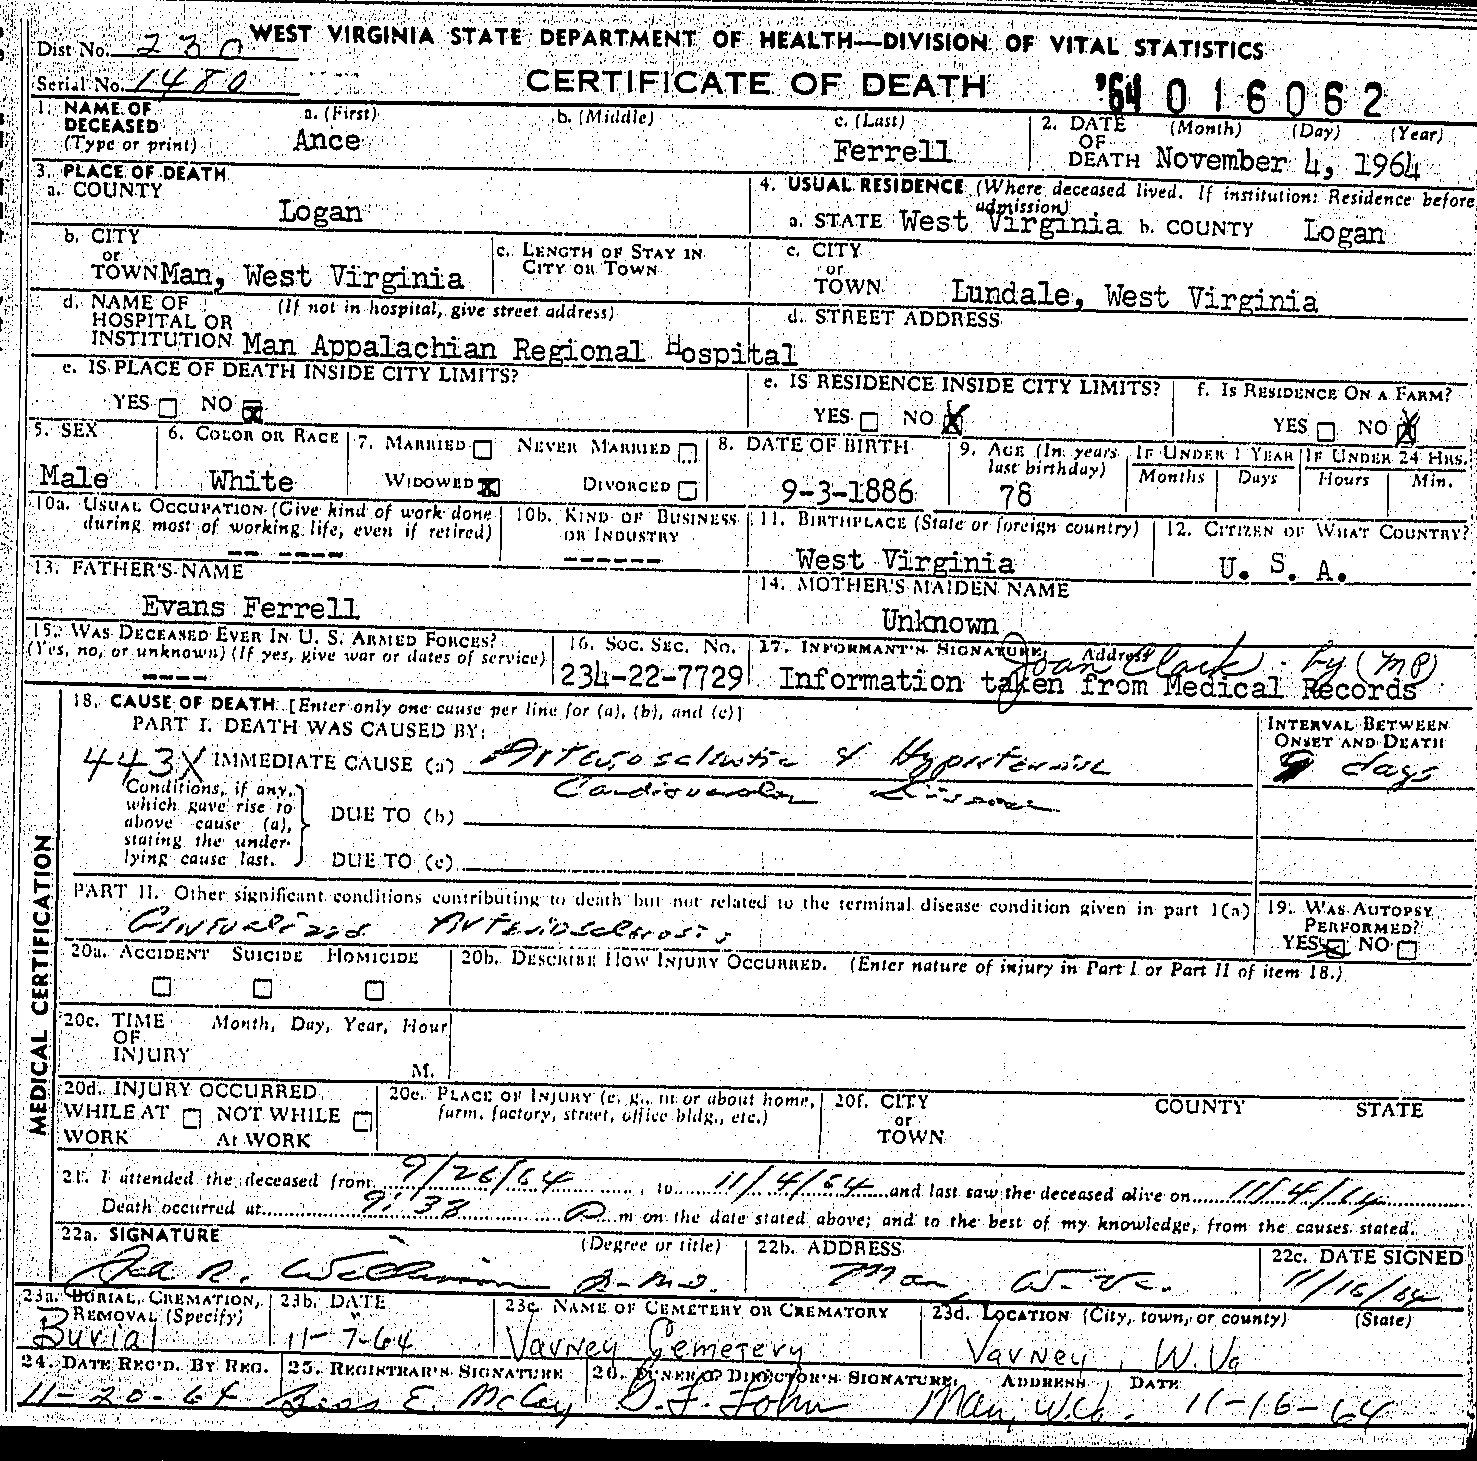 WEST VIRGINIA STATE DEPARTMENT OF HEALTH—DIVISION OF VITAL STATISTICS
Dist No. 230
Serial No. 1480
CERTIFICATE OF DEATH
'64 016062
1. NAME OF DECEASED (Type or print)
a. (First) b. (Middle) c. (Last)
Ance Ferrell
2. DATE OF DEATH (Month) (Day) (Year)
November 4, 1964
3. PLACE OF DEATH
a. COUNTY
Logan
4. USUAL RESIDENCE (Where deceased lived. If institution: Residence before admission)
a. STATE West Virginia b. COUNTY Logan
b. CITY or TOWN Man, West Virginia
c. LENGTH OF STAY IN CITY OR TOWN
c. CITY or TOWN Lundale, West Virginia
d. NAME OF HOSPITAL OR INSTITUTION (If not in hospital, give street address)
Man Appalachian Regional Hospital
d. STREET ADDRESS
e. IS PLACE OF DEATH INSIDE CITY LIMITS?
YES NO X
e. IS RESIDENCE INSIDE CITY LIMITS?
YES NO X
f. IS RESIDENCE ON A FARM?
YES NO X
5. SEX
Male
6. COLOR OR RACE
White
7. MARRIED NEVER MARRIED
WIDOWED X DIVORCED
8. DATE OF BIRTH
9-3-1886
9. AGE (In years last birthday)
78
IF UNDER 1 YEAR
Months Days
IF UNDER 24 HRS.
Hours Min.
10a. USUAL OCCUPATION (Give kind of work done during most of working life, even if retired)
-- ----
10b. KIND OF BUSINESS OR INDUSTRY
------
11. BIRTHPLACE (State or foreign country)
West Virginia
12. CITIZEN OF WHAT COUNTRY?
U. S. A.
13. FATHER'S NAME
Evans Ferrell
14. MOTHER'S MAIDEN NAME
Unknown
15. WAS DECEASED EVER IN U. S. ARMED FORCES?
(Yes, no, or unknown) (If yes, give war or dates of service)
----
16. SOC. SEC. No.
234-22-7729
17. INFORMANT'S SIGNATURE Address
Joan Clark
Information taken from Medical Records
18. CAUSE OF DEATH [Enter only one cause per line for (a), (b), and (c)]
PART I. DEATH WAS CAUSED BY:
443X IMMEDIATE CAUSE (a) Arteriosclerotic & Hypertensive
Cardiovascular Disease
INTERVAL BETWEEN ONSET AND DEATH
9 days
Conditions, if any, which gave rise to above cause (a), stating the underlying cause last.
DUE TO (b)
DUE TO (c)
PART II. Other significant conditions contributing to death but not related to the terminal disease condition given in part I(a)
Generalized Arteriosclerosis
19. WAS AUTOPSY PERFORMED?
YES X NO
MEDICAL CERTIFICATION
20a. ACCIDENT SUICIDE HOMICIDE
20b. DESCRIBE HOW INJURY OCCURRED. (Enter nature of injury in Part I or Part II of item 18.)
20c. TIME OF INJURY Month, Day, Year, Hour
M.
20d. INJURY OCCURRED
WHILE AT WORK NOT WHILE At WORK
20e. PLACE OF INJURY (e. g., in or about home, farm, factory, street, office bldg., etc.)
20f. CITY or TOWN COUNTY STATE
21. I attended the deceased from 9/26/64, to 11/4/64 and last saw the deceased alive on 11/4/64
Death occurred at 9:38 m on the date stated above; and to the best of my knowledge, from the causes stated.
22a. SIGNATURE (Degree or title)
22b. ADDRESS
Man, W. Va.
22c. DATE SIGNED
11/16/64
23a. BURIAL, CREMATION, REMOVAL (Specify)
Burial
23b. DATE
11-7-64
23c. NAME OF CEMETERY OR CREMATORY
Varney Cemetery
23d. LOCATION (City, town, or county) (State)
Varney, W. Va
24. DATE REC'D. BY REG.
11-20-64
25. REGISTRAR'S SIGNATURE
Bess E. McCoy
26. FUNERAL DIRECTOR'S SIGNATURE, ADDRESS, DATE
Man, W.Va. 11-16-64